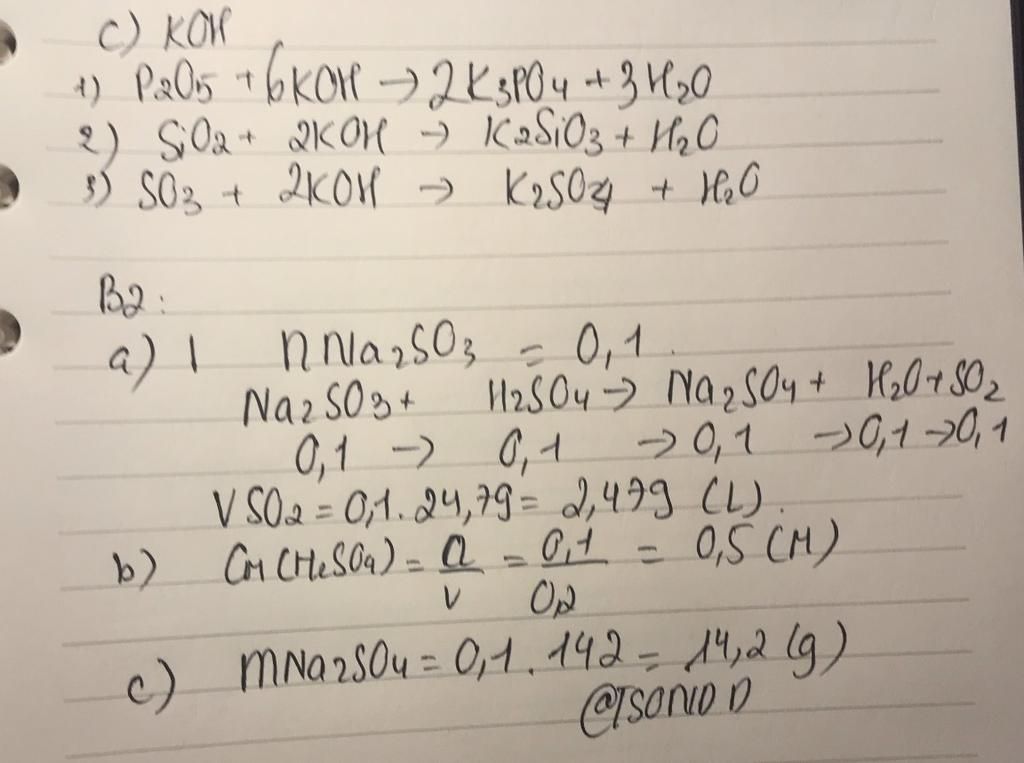 c) KOH
1) P2O5 + 6KOH → 2K3PO4 + 3H2O
2) SiO2 + 2KOH → K2SiO3 + H2O
3) SO3 + 2KOH → K2SO4 + H2O
B2:
a) 1 nNa2SO3 = 0,1.
Na2SO3 + H2SO4 → Na2SO4 + H2O + SO2
0,1 → 0,1 → 0,1 → 0,1 → 0,1
VSO2 = 0,1. 24,79 = 2,479 (L).
b) CM (H2SO4) = n/v = 0,1/0,2 = 0,5 (M)
c) mNa2SO4 = 0,1. 142 = 14,2 (g)